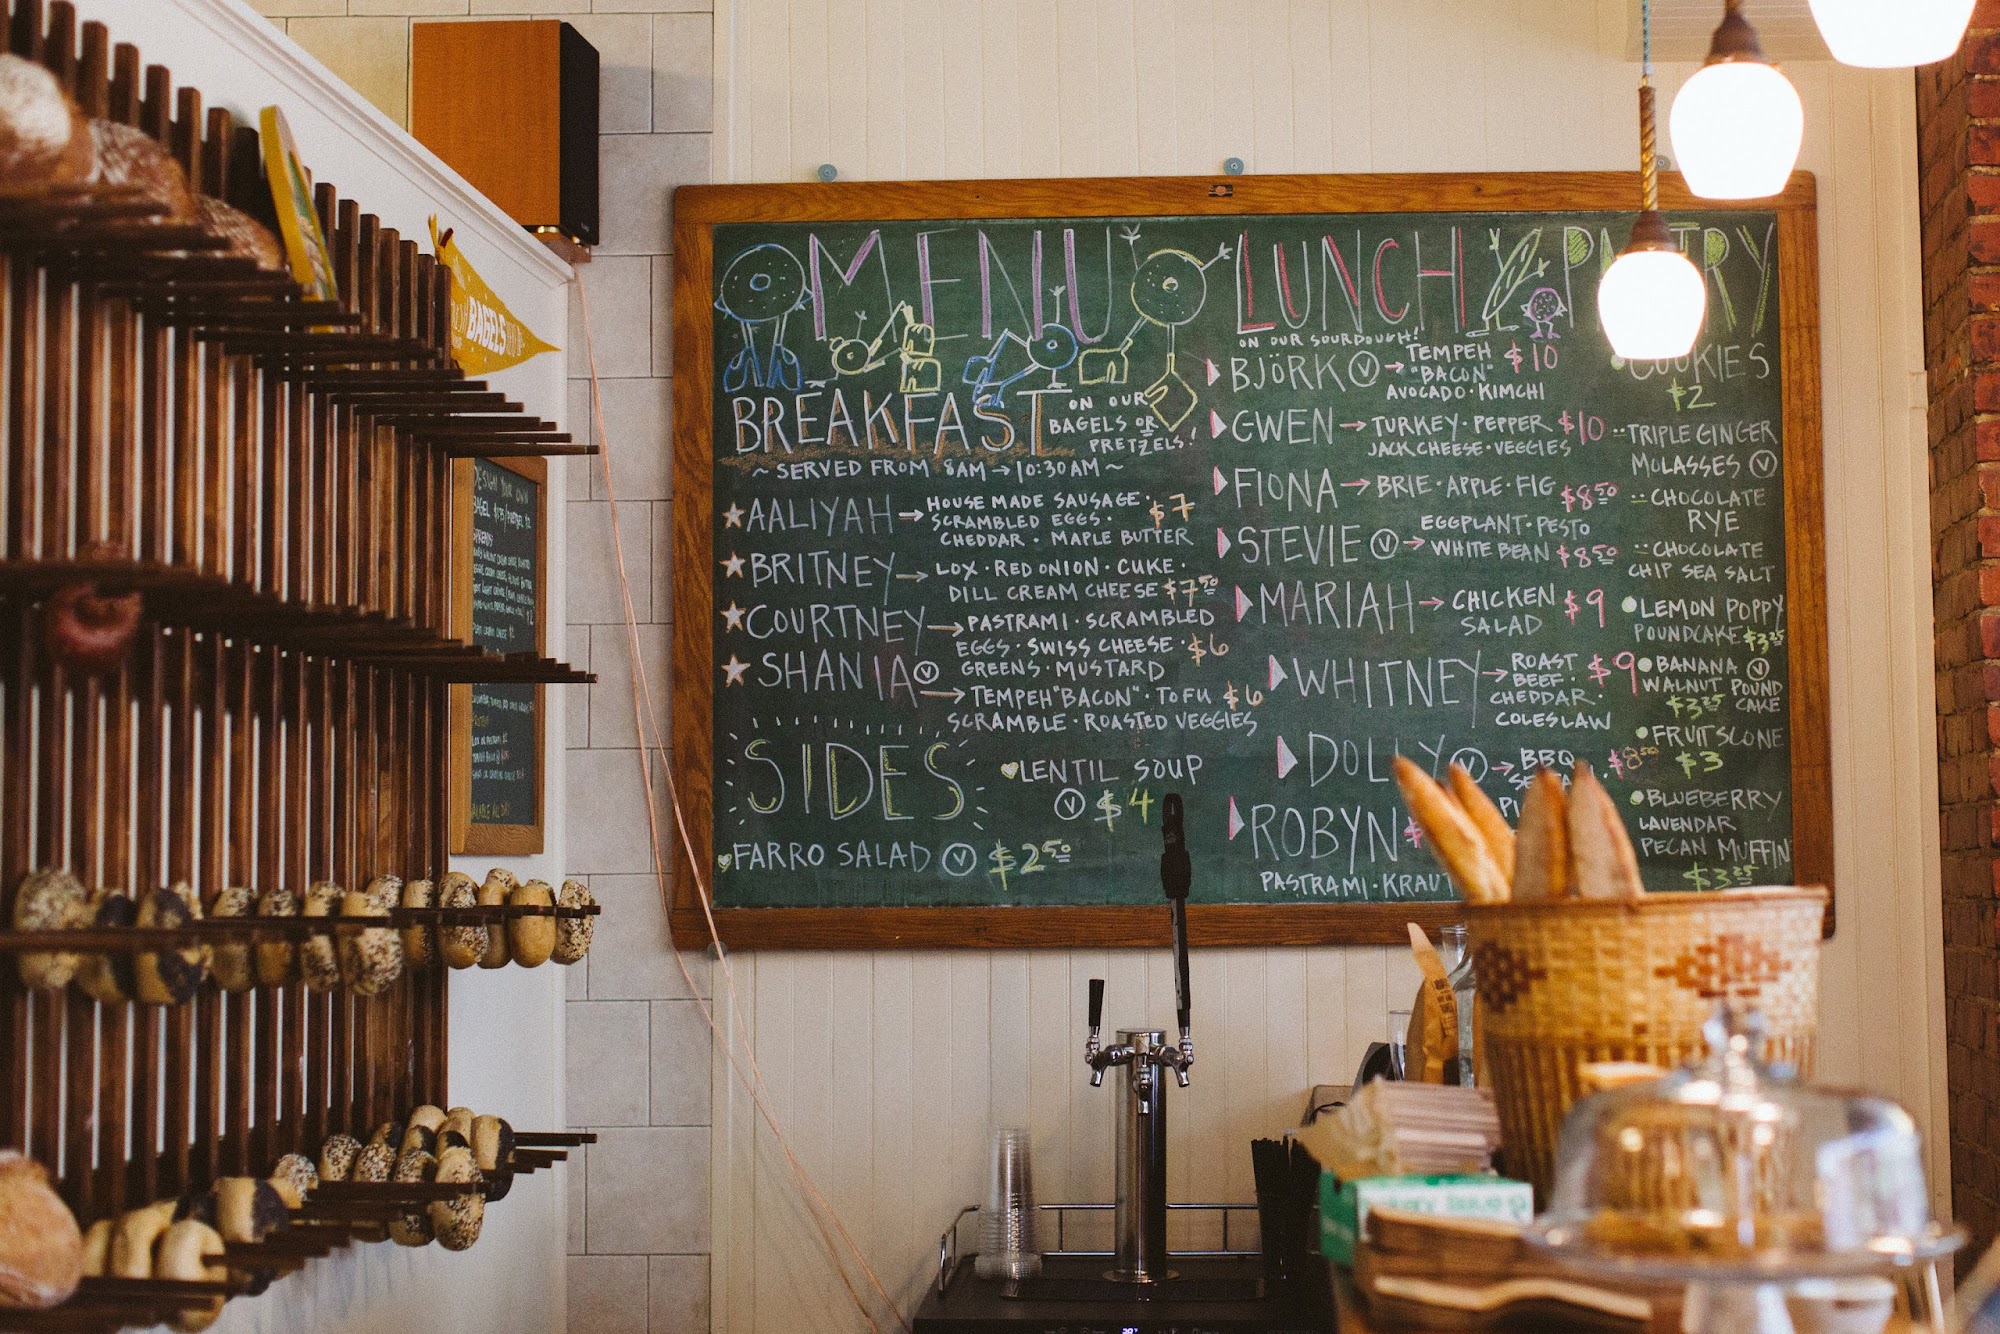 MENU
BREAKFAST
ON OUR
BAGELS OR
PRETZELS!
~ SERVED FROM 8AM → 10:30AM ~
AALIYAH → HOUSE MADE SAUSAGE · $7
SCRAMBLED EGGS ·
CHEDDAR · MAPLE BUTTER
BRITNEY → LOX · RED ONION · CUKE ·
DILL CREAM CHEESE $7.50
COURTNEY → PASTRAMI · SCRAMBLED
EGGS · SWISS CHEESE · $6
GREENS · MUSTARD
SHANIA Ⓥ
→ TEMPEH "BACON" · TOFU $6
SCRAMBLE · ROASTED VEGGIES
SIDES
LENTIL SOUP
Ⓥ $4
FARRO SALAD Ⓥ $2.50
LUNCH
ON OUR SOURDOUGH!
BJÖRK Ⓥ → TEMPEH $10
"BACON"
AVOCADO · KIMCHI
GWEN → TURKEY · PEPPER $10
JACK CHEESE · VEGGIES
FIONA → BRIE · APPLE · FIG $8.50
STEVIE Ⓥ → EGGPLANT · PESTO
WHITE BEAN $8.50
MARIAH → CHICKEN $9
SALAD
WHITNEY → ROAST $9
BEEF ·
CHEDDAR ·
COLESLAW
DOLLY Ⓥ → BBQ $8.50
ROBYN
PASTRAMI · KRAUT
COOKIES
$2
TRIPLE GINGER
MOLASSES Ⓥ
CHOCOLATE
RYE
CHOCOLATE
CHIP SEA SALT
LEMON POPPY
POUNDCAKE $3.25
BANANA Ⓥ
WALNUT POUND
$3.25 CAKE
FRUIT SCONE
$3
BLUEBERRY
LAVENDAR
PECAN MUFFIN
$3.25
BAGELS
DESIGN YOUR OWN
SPREADS